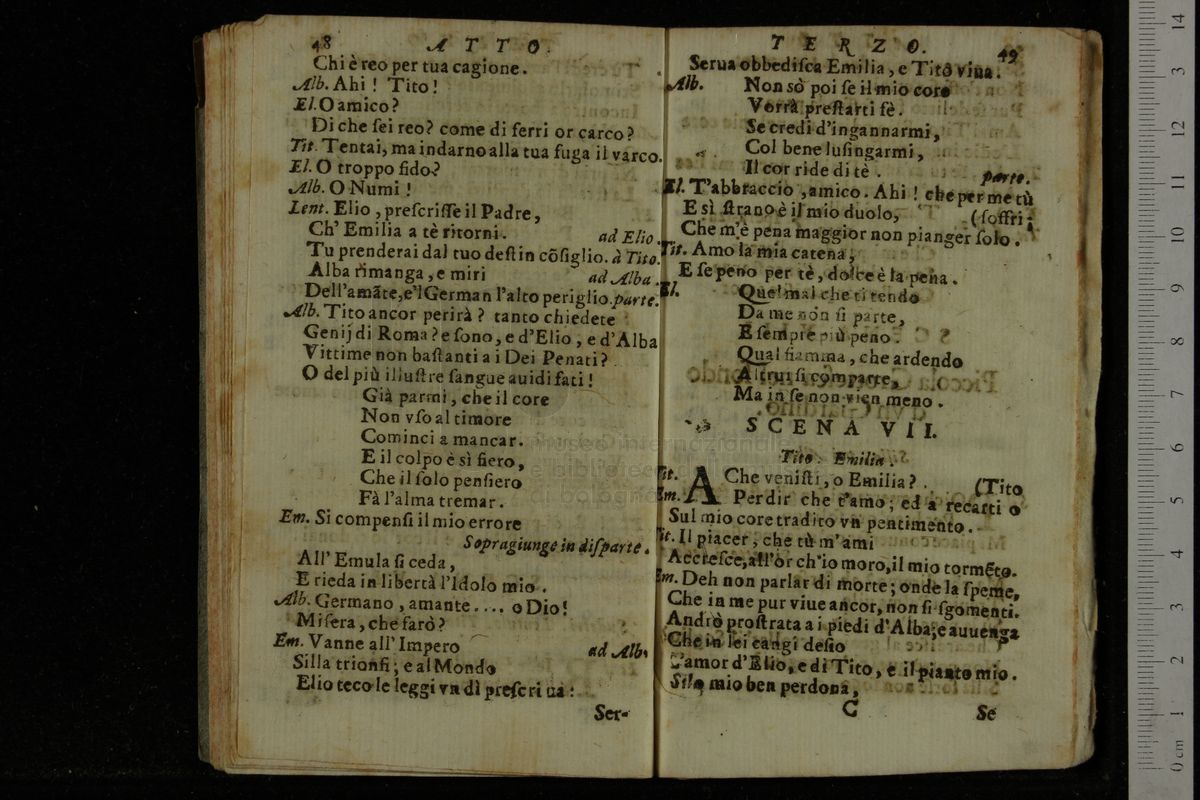 48 ATTO.
Chi è reo per tua cagione.
Alb. Ahi ! Tito!
El. O amico?
Di che ſei reo? come di ferri or carco?
Tit. Tentai, ma indarno alla tua fuga il varco.
El. O troppo fido?
Alb. O Numi !
Lent. Elio , preſcriſſe il Padre,
Ch' Emilia a tè ritorni. ad Elio.
Tu prenderai dal tuo deſtin cõſiglio. à Tito.
Alba rimanga , e miri ad Alba.
Dell'amãte, e'l German l'alto periglio. parte.
Alb. Tito ancor perirà ? tanto chiedete
Genij di Roma? e ſono, e d'Elio , e d'Alba
Vittime non baſtanti a i Dei Penati?
O del più illuſtre ſangue auidi fati !
Già parmi , che il core
Non vſo al timore
Cominci a mancar.
E il colpo è sì fiero,
Che il ſolo penſiero
Fà l'alma tremar.
Em. Si compenſi il mio errore
Sopragiunge in diſparte.
All' Emula ſi ceda,
E rieda in libertà l'Idolo mio.
Alb. Germano , amante.... o Dio!
Miſera, che farò?
Em. Vanne all' Impero ad Alb.
Silla trionfi ; e al Mondo
Elio teco le leggi vn dì preſcriua :
Ser-
TERZO. 49
Serua obbediſca Emilia , e Tito viua.
Alb. Non sò poi ſe il mio core
Vorrà preſtarti fè.
Se credi d'ingannarmi,
Col bene luſingarmi,
Il cor ride di tè . parte.
El. T'abbraccio , amico. Ahi ! che per me tù
E sì ſtrano è il mio duolo, (ſoffri;
Che m'è pena maggior non pianger ſolo.
Tit. Amo la mia catena,
E ſe peno per tè, dolce è la pena.
El. Quel mal che ti rendo
Da me non ſi parte,
E ſempre più peno.
Qual fiamma , che ardendo
Altrui ſi comparte,
Ma in ſe non vien meno.
SCENA VII.
Tito. Emilia.
Tit. A Che veniſti, o Emilia? (Tito
Em. Per dir che t'amo; ed a recarti o
Sul mio core tradito vn pentimento.
Tit. Il piacer , che tù m'ami
Accreſce, all'or ch'io moro, il mio tormẽto.
Em. Deh non parlar di morte; onde la ſpeme,
Che in me pur viue ancor, non ſi ſgomenti.
Andrò proſtrata a i piedi d'Alba; e auuenga
Che in lei cangi deſio
L'amor d'Elio, e di Tito, e il pianto mio.
mio ben perdona,
C Se